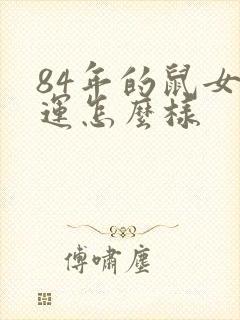 84年的鼠女
運怎麼樣
傅嘯塵